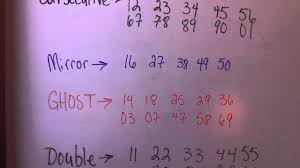 Consecutive 12 23 34 45 56
67 78 89 90 01
Mirror → 16 27 38 49 50
GHOST → 14 18 25 29 36
03 07 47 58 69
Double → 11 22 33 44 55